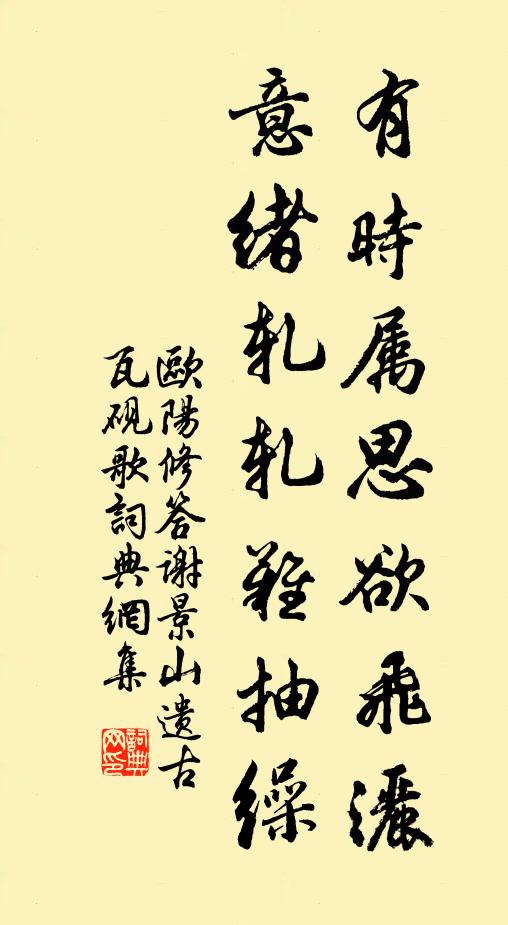 有時属思欲飛灑
意緒軋軋難抽繰
歐陽修答謝景山遺古
瓦硯歌詞典網集